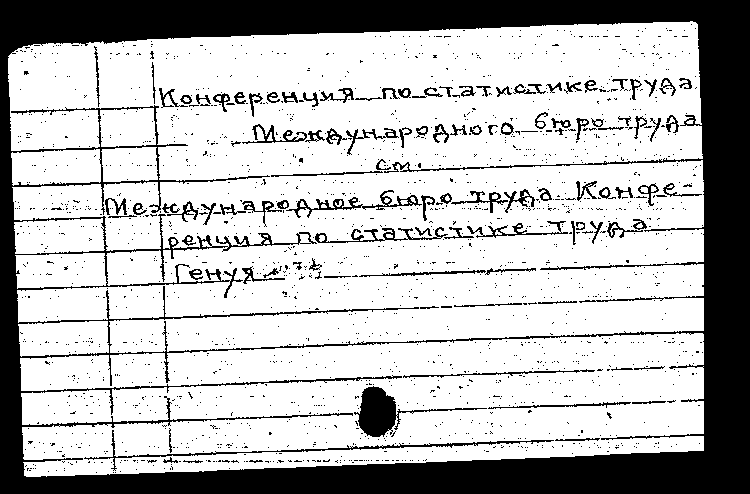 Конференция по статистике труда
Международного бюро труда
см.
Международное бюро труда Конфе-
ренция по статистике труда
Генуя